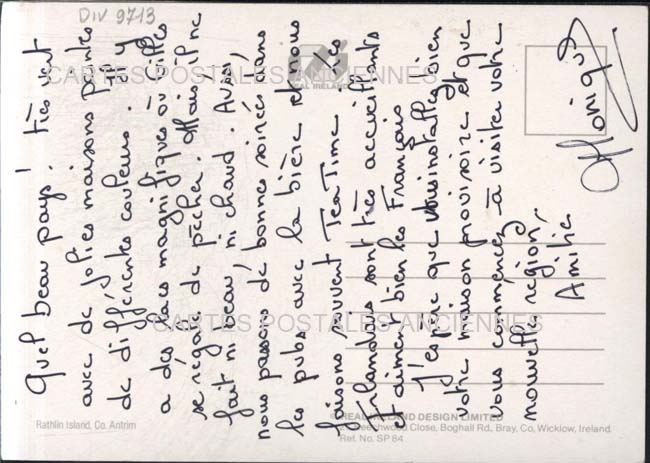 DIV 9713
Quel beau pays! très vert
avec de jolies maisons peintes
de différentes couleurs. Il y
a des lacs magnifiques où Gilles
se régale de pêcher. Mais il ne
fait ni beau, ni chaud. Aussi,
nous passons de bonnes soirées dans
les pubs avec la bière et nous
faisons souvent Tea Time. Les
Irlandais sont très accueillants
et aiment bien les Français
J'espère que vous installés bien
votre maison provisoire et que
vous commencez à visiter votre
nouvelle région,
Amitié
Monique
REAL IRELAND
CARTES POSTALES ANCIENNES
CARTES POSTALES ANCIENNES
Rathlin Island, Co. Antrim
© REAL IRELAND DESIGN LIMITED
Beechwood Close, Boghall Rd., Bray, Co. Wicklow, Ireland.
Ref. No. SP 84